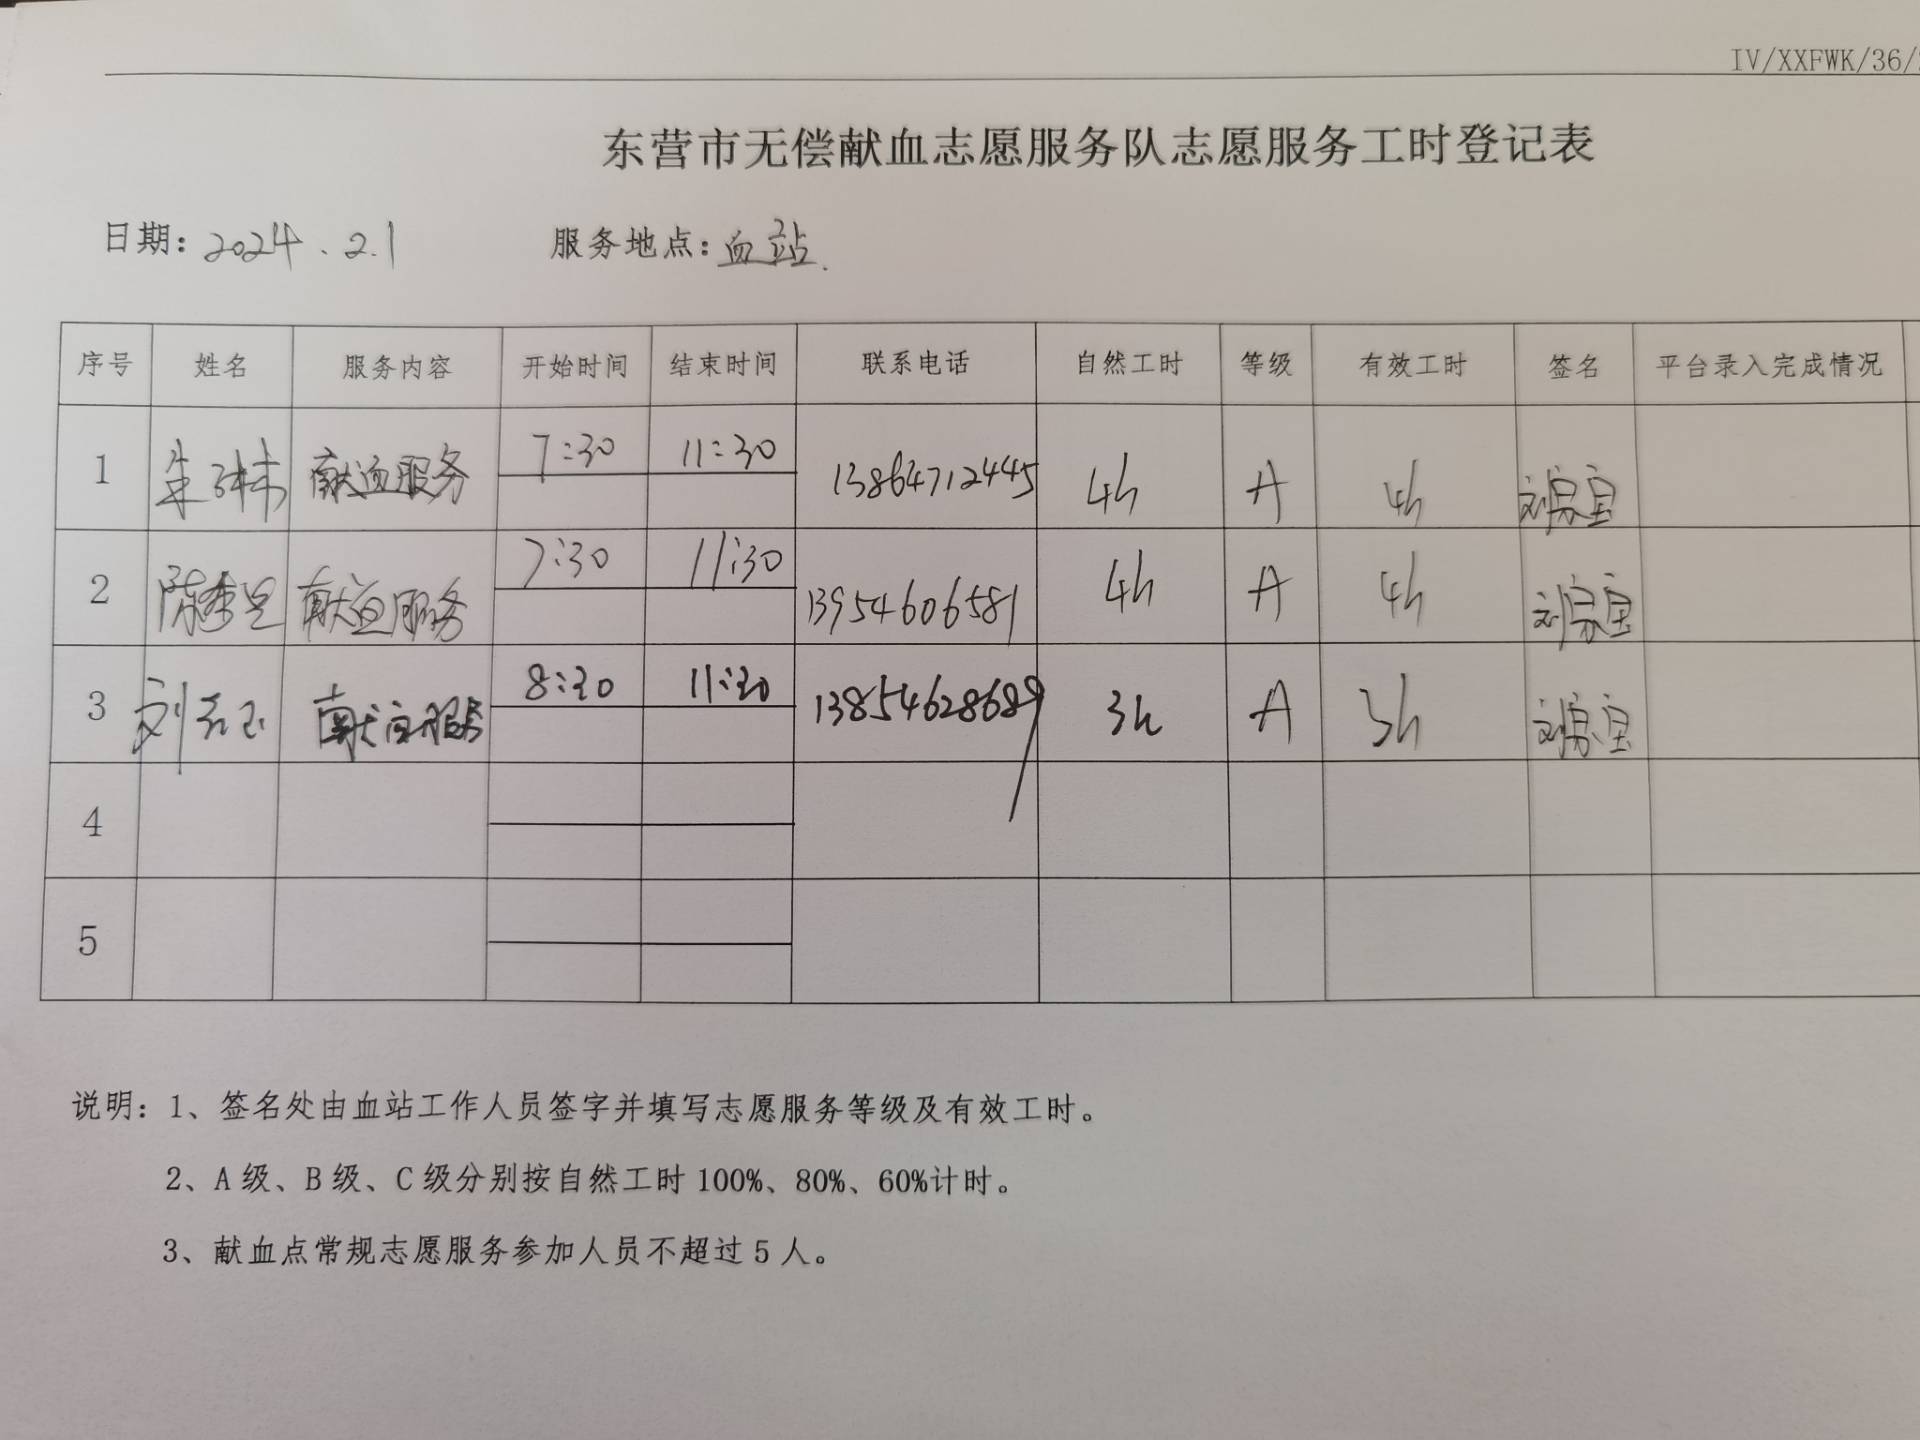 IV/XXFWK/36/
东营市无偿献血志愿服务队志愿服务工时登记表
日期：2024.2.1 服务地点：血站.
序号 姓名 服务内容 开始时间 结束时间 联系电话 自然工时 等级 有效工时 签名 平台录入完成情况
1 朱 献血服务 7:30 11:30 13864712445 4h A 4h 刘宗宝
2 陈 献血服务 7:30 11:30 13954606581 4h A 4h 刘宗宝
3 刘 献血服务 8:30 11:30 13854628689 3h A 3h 刘宗宝
4
5
说明：1、签名处由血站工作人员签字并填写志愿服务等级及有效工时。
2、A级、B级、C级分别按自然工时100%、80%、60%计时。
3、献血点常规志愿服务参加人员不超过5人。